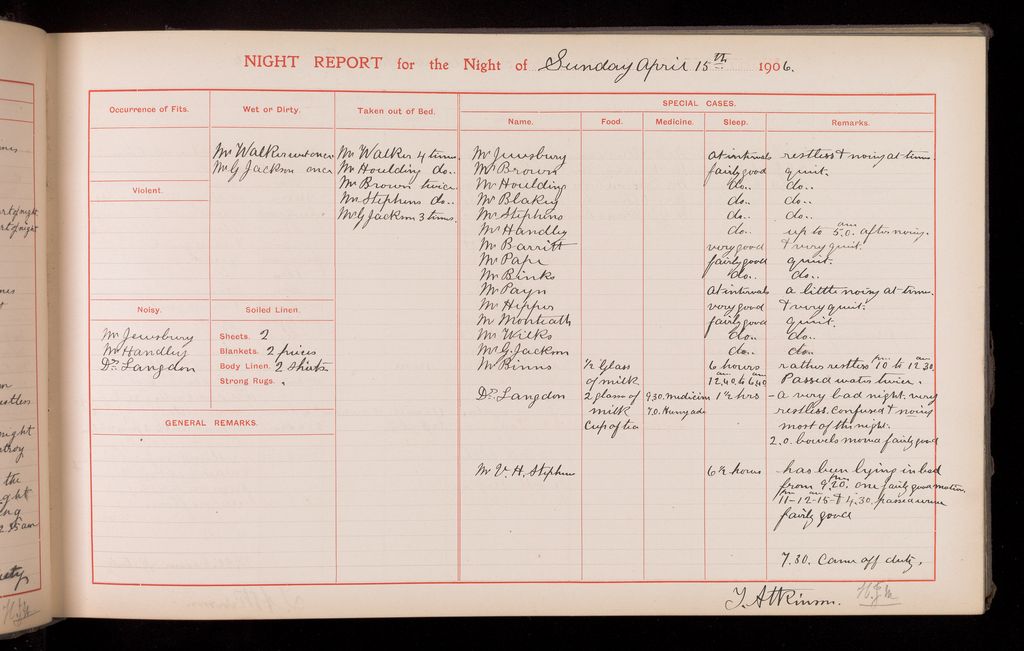 NIGHT REPORT for the Night of Sunday April 15th 1906.
Occurrence of Fits.
Wet or Dirty.
Taken out of Bed.
SPECIAL CASES.
Name. Food. Medicine. Sleep. Remarks.
Mr Walker wet once
Mr G Jackson once
Mr Walker 4 times.
Mr Houlding do..
Mr Brown twice
Mr Stephens do..
Mr G Jackson 3 times.
Violent.
Noisy.
Mr Jewsbury
Mr Handley
Dr. Langdon
Soiled Linen.
Sheets. 2
Blankets. 2 pieces
Body Linen. 2 Shirts
Strong Rugs.
GENERAL REMARKS.
Mr Jewsbury at intervals restless & noisy at times
Mr Brown fairly good quiet.
Mr Houlding do.. do..
Mr Blakey do.. do..
Mr Stephens do.. do..
Mr Handley do.. up to 5.0. am after noisy.
Mr Barritt very good & very quiet.
Mr Pape fairly good quiet.
Mr Binks do.. do..
Mr Payn at intervals a little noisy at times.
Mr Hepper very good & very quiet.
Mr Monteath fairly good quiet.
Mr Wilks do.. do..
Mr G. Jackson do.. do..
Mr Binns ½ Glass 6 hours rather restless 10 pm to 12 30 am
of milk 12.40 am to 6 40 am Passed water twice.
Dr. Langdon 2 glass of 9.30. medicine 1½ hrs - a very bad night. very
milk 7.0. Hunyadi restless. confused & noisy
Cup of tea most of the night.
2.0. bowels moved fairly good
Mr V. H. Stephens 6½ hours - has been lying in bed
from 9.20. pm one fairly good motion
11 pm - 12-15 am & 4.30. passed urine
fairly good
7.30. Came off duty.
T. Atkinson.